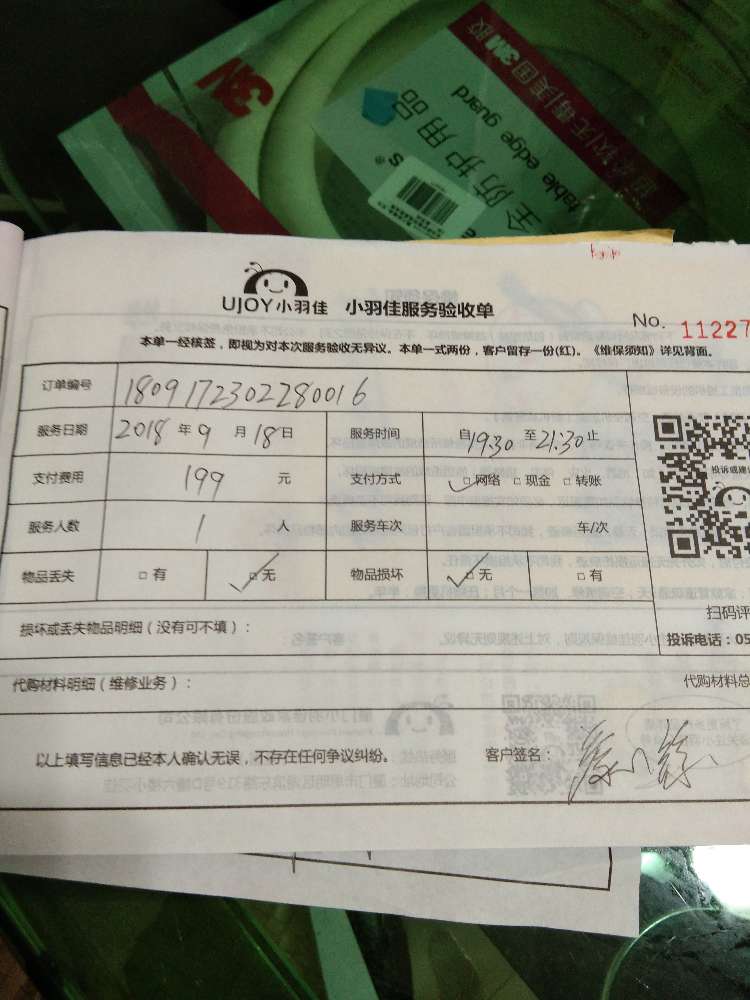 3M
全防护用品
table edge guard
UJOY小羽佳 小羽佳服务验收单
No. 11227
本单一经核签，即视为对本次服务验收无异议。本单一式两份，客户留存一份(红)。《维保须知》详见背面。
订单编号 1809172302280016
服务日期 2018 年 9 月 18 日 服务时间 自 19:30 至 21:30 止
支付费用 199 元 支付方式 □网络 □现金 □转账
服务人数 1 人 服务车次 车/次
物品丢失 □有 □无 物品损坏 □无 □有
投诉或建
扫码评
损坏或丢失物品明细（没有可不填）：
投诉电话：05
代购材料明细（维修业务）： 代购材料总
以上填写信息已经本人确认无误，不存在任何争议纠纷。 客户签名：